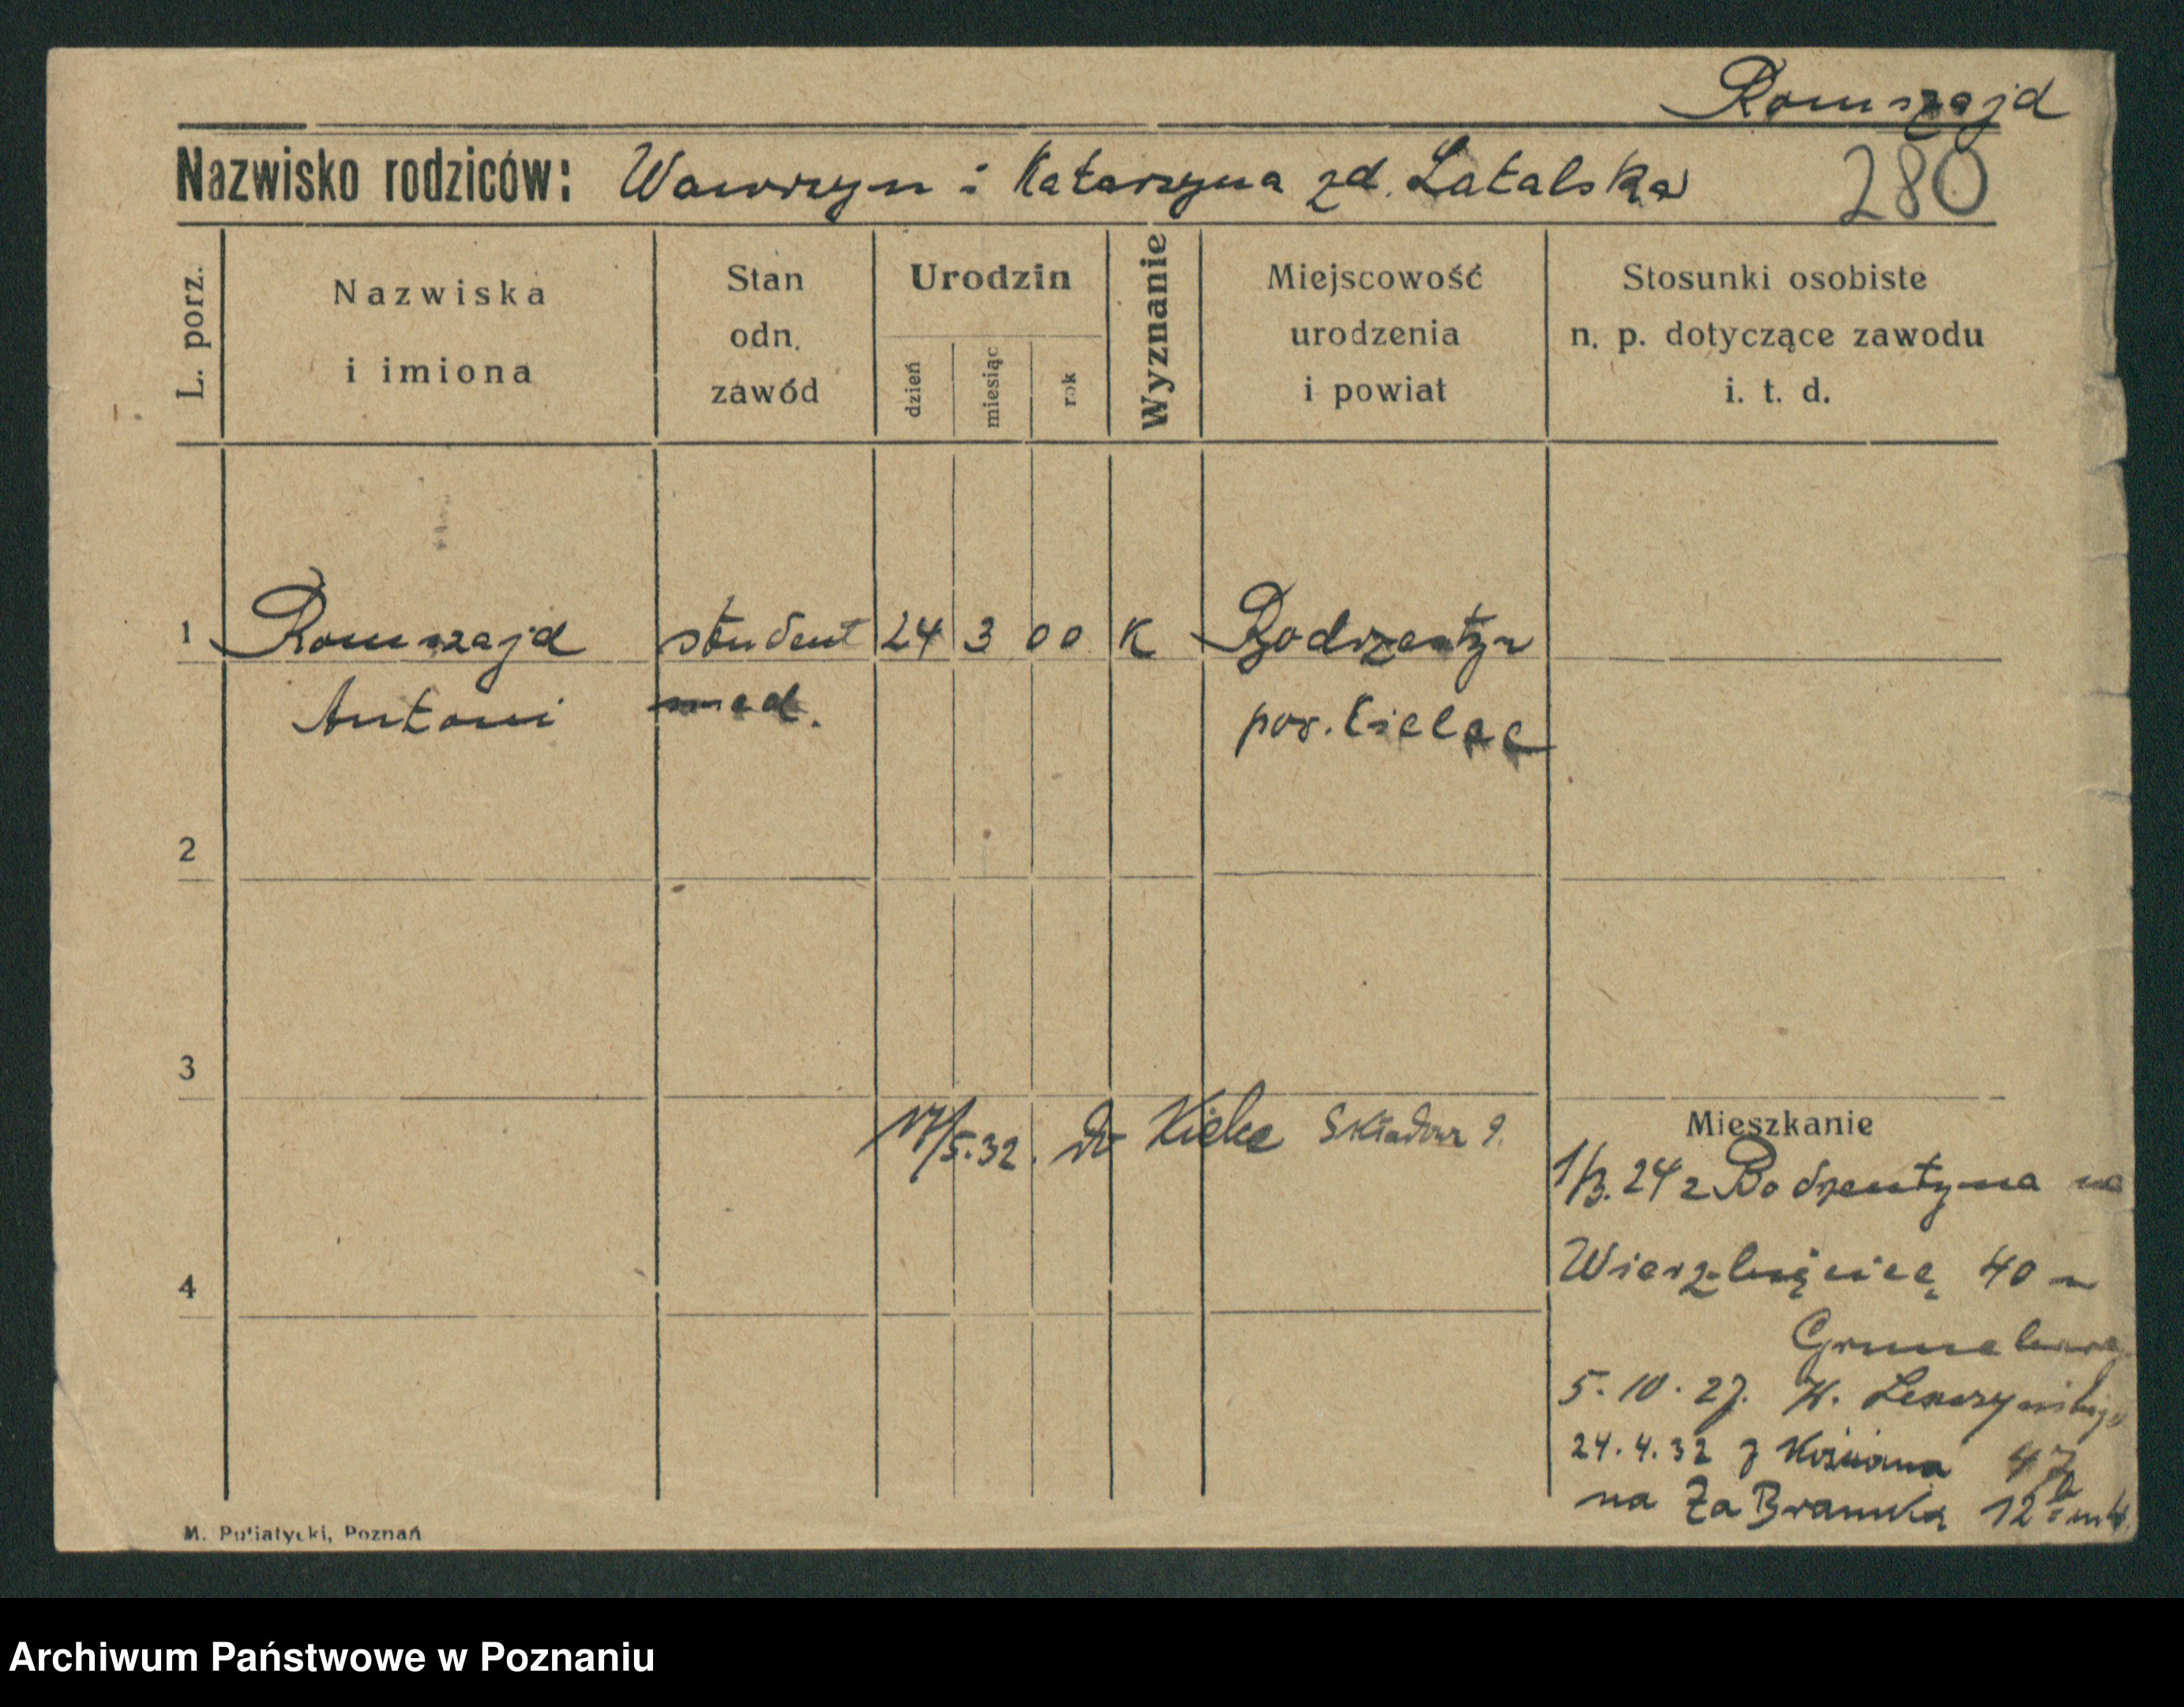 Romszajd
Nazwisko rodziców: Wawrzyn i Katarzyna zd. Latalska 280
L. porz.
Nazwiska
i imiona
Stan
odn.
zawód
Urodzin
dzień
miesiąc
rok
Wyznanie
Miejscowość
urodzenia
i powiat
Stosunki osobiste
n. p. dotyczące zawodu
i. t. d.
1 Romszajd student 24 3 00 K Bodzentyn
Antoni med. pow. Kielce
2
3
17/5.32. do Kielc Składowa 9.
Mieszkanie
1/3. 24 z Bodzentyna na
Wierzbięcice 40 u
5.10.27.
24.4.32 z Kościana 47
na Za Bramką 12
4
M. Putiatycki, Poznań
Archiwum Państwowe w Poznaniu